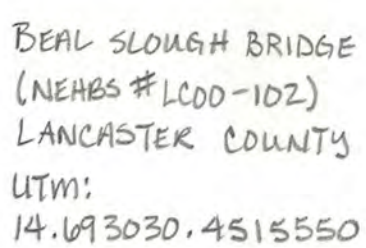 BEAL SLOUGH BRIDGE
(NEHBS #LC00-102)
LANCASTER COUNTY
UTM:
14.693030.4515550